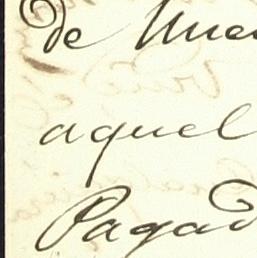 de Nue
aquel
Pagad